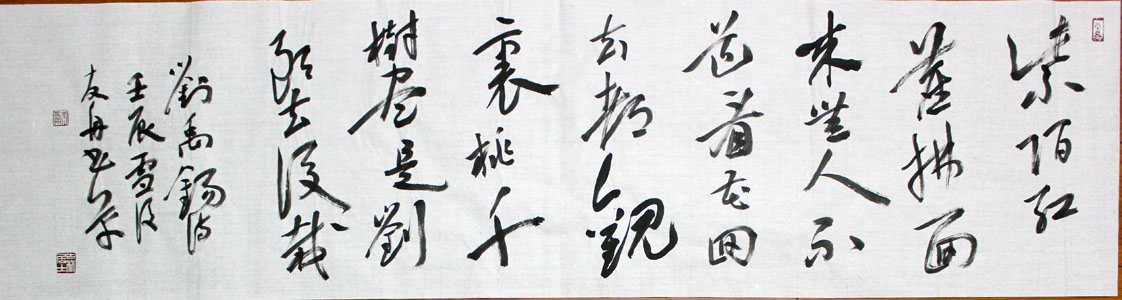 紫陌红
塵拂面
来無人不
道看花回
玄都觀
裏桃千
樹尽是劉
郎去後栽
劉禹錫诗
壬辰雪後
友丹书